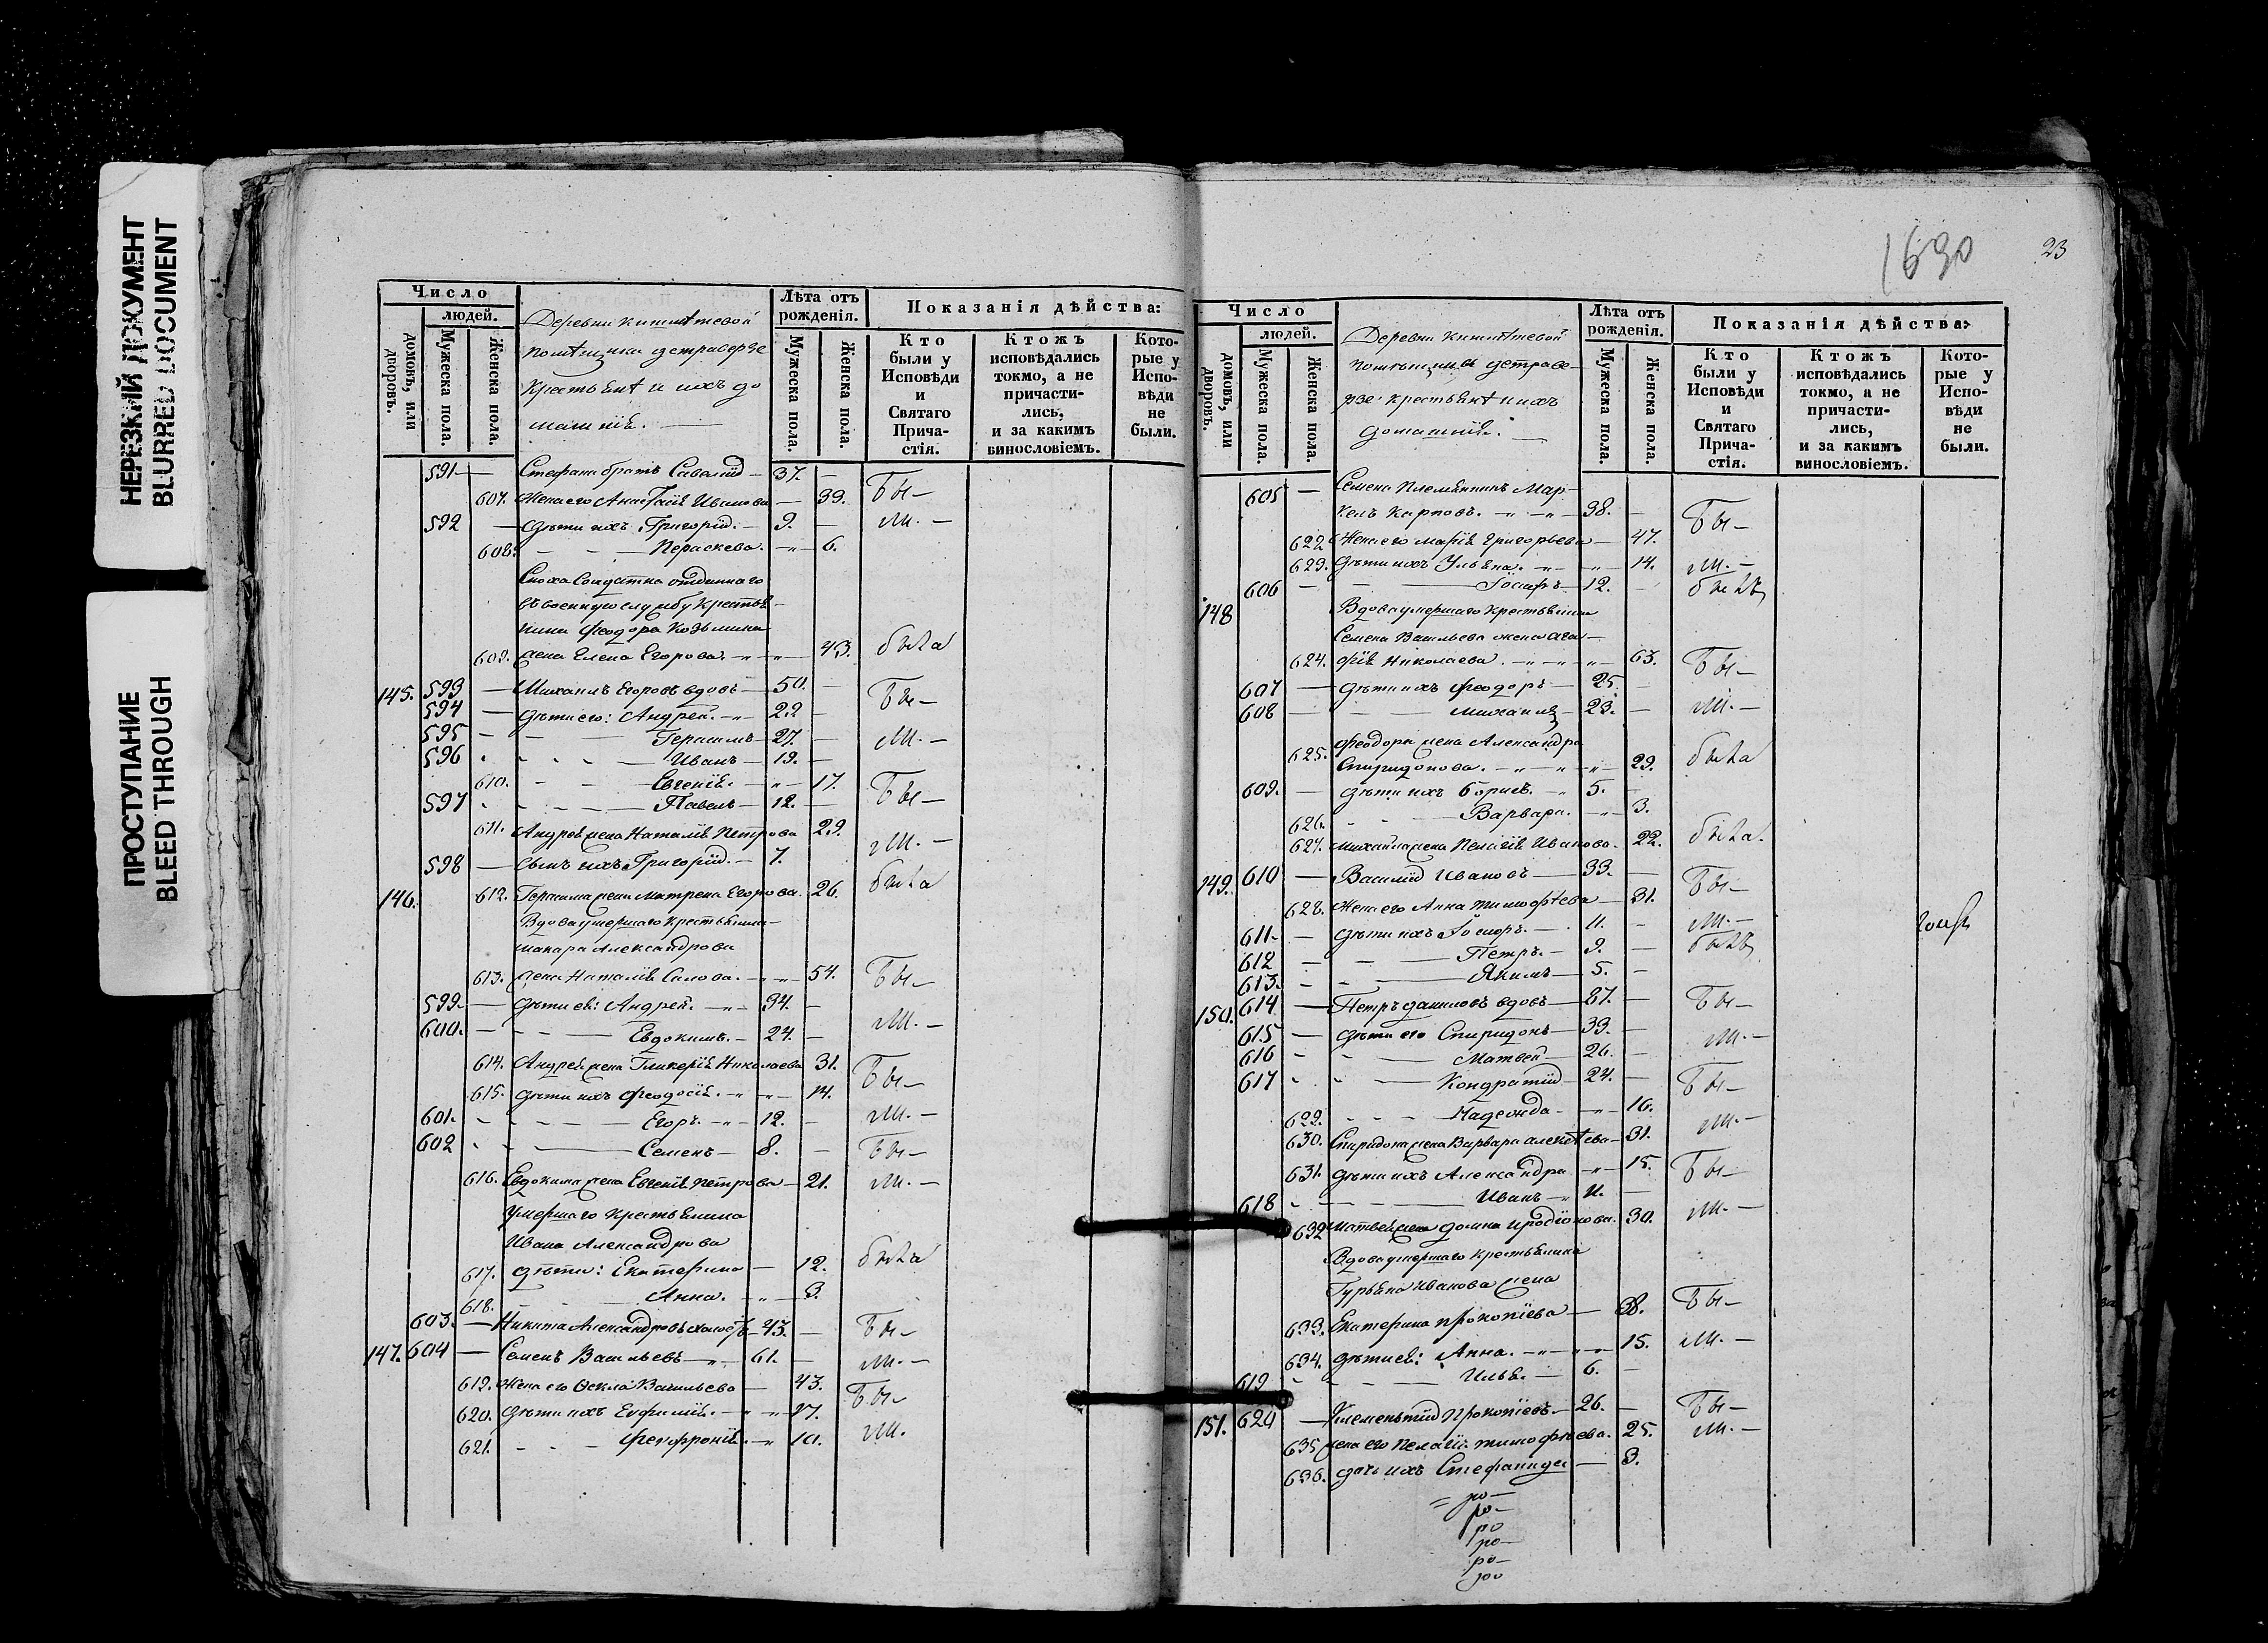 НЕРЕЗКИЙ ДОКУМЕНТ
BLURRED DOCUMENT
ПРОСТУПАНИЕ
BLEED THROUGH
Число
людей.
домовъ, или дворовъ.
Мужеска пола.
Женска пола.
Деревни
крестьяне и ихъ до
машніе.
Лѣта отъ рожденія.
Мужеска пола.
Женска пола.
Показанія дѣйства:
Кто были у Исповѣди и Святаго Прича-стія.
Ктожъ исповѣдались токмо, а не причасти-лись, и за какимъ винословіемъ.
Кото-рые у Испо-вѣди не были.
591 — Стефана братъ Савелій — 37. — Бы-
607. жена его Анастасія Иванова — 39.
592 — дѣти ихъ Григорій. — 9. — ли. —
608. — Параскева. — 6.
Сноха Солдатка отданнаго
въ военную службу крестья-
нина Феодора Козьмина
609. жена Елена Егорова. — 43. была
145. 593 — Михаилъ Егоровъ вдовъ — 50. — Бы-
594 — дѣти его: Андрей. — 29 —
595 — Герасимъ — 27. — ли. —
596 — Иванъ — 19. —
610. — Евгенія. — 17. Бы-
597 — Павелъ — 12. —
611. Андрея жена Наталія Петрова 29. ли. —
598 — сынъ ихъ Григорій. — 7.
146. 612. Герасима жена Матрена Егорова. 26. была
Вдова умершаго крестьянина
Макара Александрова
613. жена Наталія Савова. — 54. Бы-
599. — дѣти ея: Андрей. — 34. —
600. — Евдокимъ. — 24. — ли. —
614. Андрея жена Гликерія Николаева 31. Бы-
615. дѣти ихъ Феодосія. — 14.
601. — Егоръ. — 12. — ли. —
602 — Семенъ — 8. — Бы-
616. Евдокима жена Евгенія Петрова — 21. ли. —
Умершаго крестьянина
Ивана Александрова
617. дѣти: Екатерина — 12. была
618. — Анна. — 3.
603. — Никита Александровъ холостъ — 43. — Бы-
147. 604 — Семенъ Васильевъ — 61. — ли. —
619. жена его Ѳекла Васильева — 43. Бы-
620. дѣти ихъ Евфимія. — 17.
621. — Феофронія. — 10. ли.
1690
23
Число
людей.
домовъ, или дворовъ.
Мужеска пола.
Женска пола.
Деревни
крестьяне и ихъ
домашніе.
Лѣта отъ рожденія.
Мужеска пола.
Женска пола.
Показанія дѣйства:
Кто были у Исповѣди и Святаго Прича-стія.
Ктожъ исповѣдались токмо, а не причасти-лись, и за какимъ винословіемъ.
Кото-рые у Испо-вѣди не были.
605 — Семена племянникъ Мар-
келъ Карповъ. — 38. — Бы-
622. жена его Марія Григорьева — 47.
623. дѣти ихъ Ульяна. — 14. ли. —
606 — Іосифъ — 12. — былъ
148 Вдова умершаго крестьянина
Семена Васильева жена Ага-
624. фія Николаева. — 63. Бы-
607 — дѣти ихъ Феодоръ — 25. —
608 — Михаилъ — 23. — ли. —
Феодора жена Александра
625. Спиридонова. — 29. была
609. — дѣти ихъ Борисъ. — 5. —
626. — Варвара. — 3.
627. Михаила жена Пелагія Иванова. 22. была.
149. 610 — Василій Ивановъ — 33. — Бы-
628. жена его Анна Тимофѣева — 31.
611 — дѣти ихъ Іосифъ. — 11. — ли. —
612 — Петръ. — 9. — былъ
613. — Якимъ — 5. —
150. 614 — Петръ Даниловъ вдовъ — 57. — Бы-
615 — дѣти его Спиридонъ — 33. —
616 — Матвей — 26. — ли. —
617 — Кондратій — 24. — Бы-
629. — Надежда — 16.
630. Спиридона жена Варвара Алексѣева — 31. ли. —
631. дѣти ихъ Александра — 15. Бы-
618 — Иванъ — 11. —
632 Матвея жена Домна Иродіонова. 30. ли. —
Вдова умершаго крестьянина
Гурьяна Иванова жена
633. Екатерина Прокопіева — 38. Бы-
634. дѣти ея: Анна. — 15. ли. —
619 — Илья. — 6. —
151. 620 — Клементій Прокопіевъ — 26. — Бы-
635 жена его Пелагія Тимофѣева. 25. ли. —
636. дочь ихъ Стефанида — 3.
ро —
ро —
ро
ро —
ро —
ро